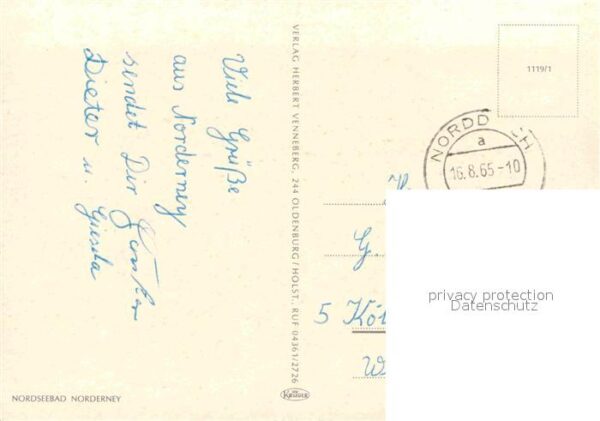 Viele Grüße
aus Norderney
sendet Dir
Dieter u. Gisela
NORDSEEBAD NORDERNEY
VERLAG HERBERT VENNEBERG, 244 OLDENBURG/HOLST. RUF 04361/2726
KRÜGER
1119/1
NORDD CH
a
16.8.65-10
G.
5 Kö
W
privacy protection
Datenschutz